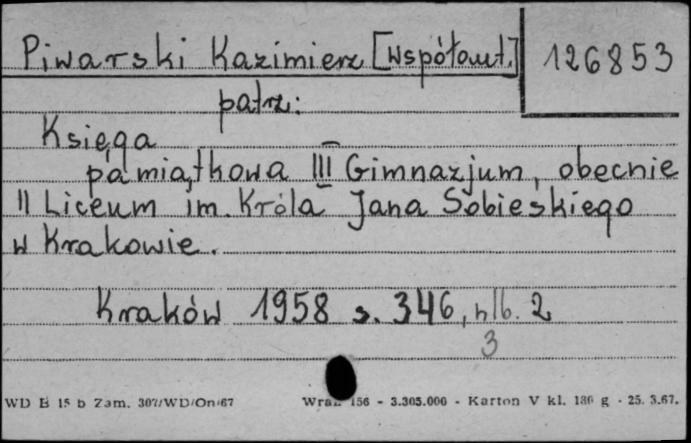 Piwarski Kazimierz [Współaut.] 126853
patrz:
Księga
pamiątkowa III Gimnazjum, obecnie
II Liceum im. Króla Jana Sobieskiego
w Krakowie.
Kraków 1958 s. 346, nlb. 2
3
WD B 15 b Zam. 307/WD/On/67 156 - 3.305.000 - Karton V kl. 180 g - 25. 3.67.